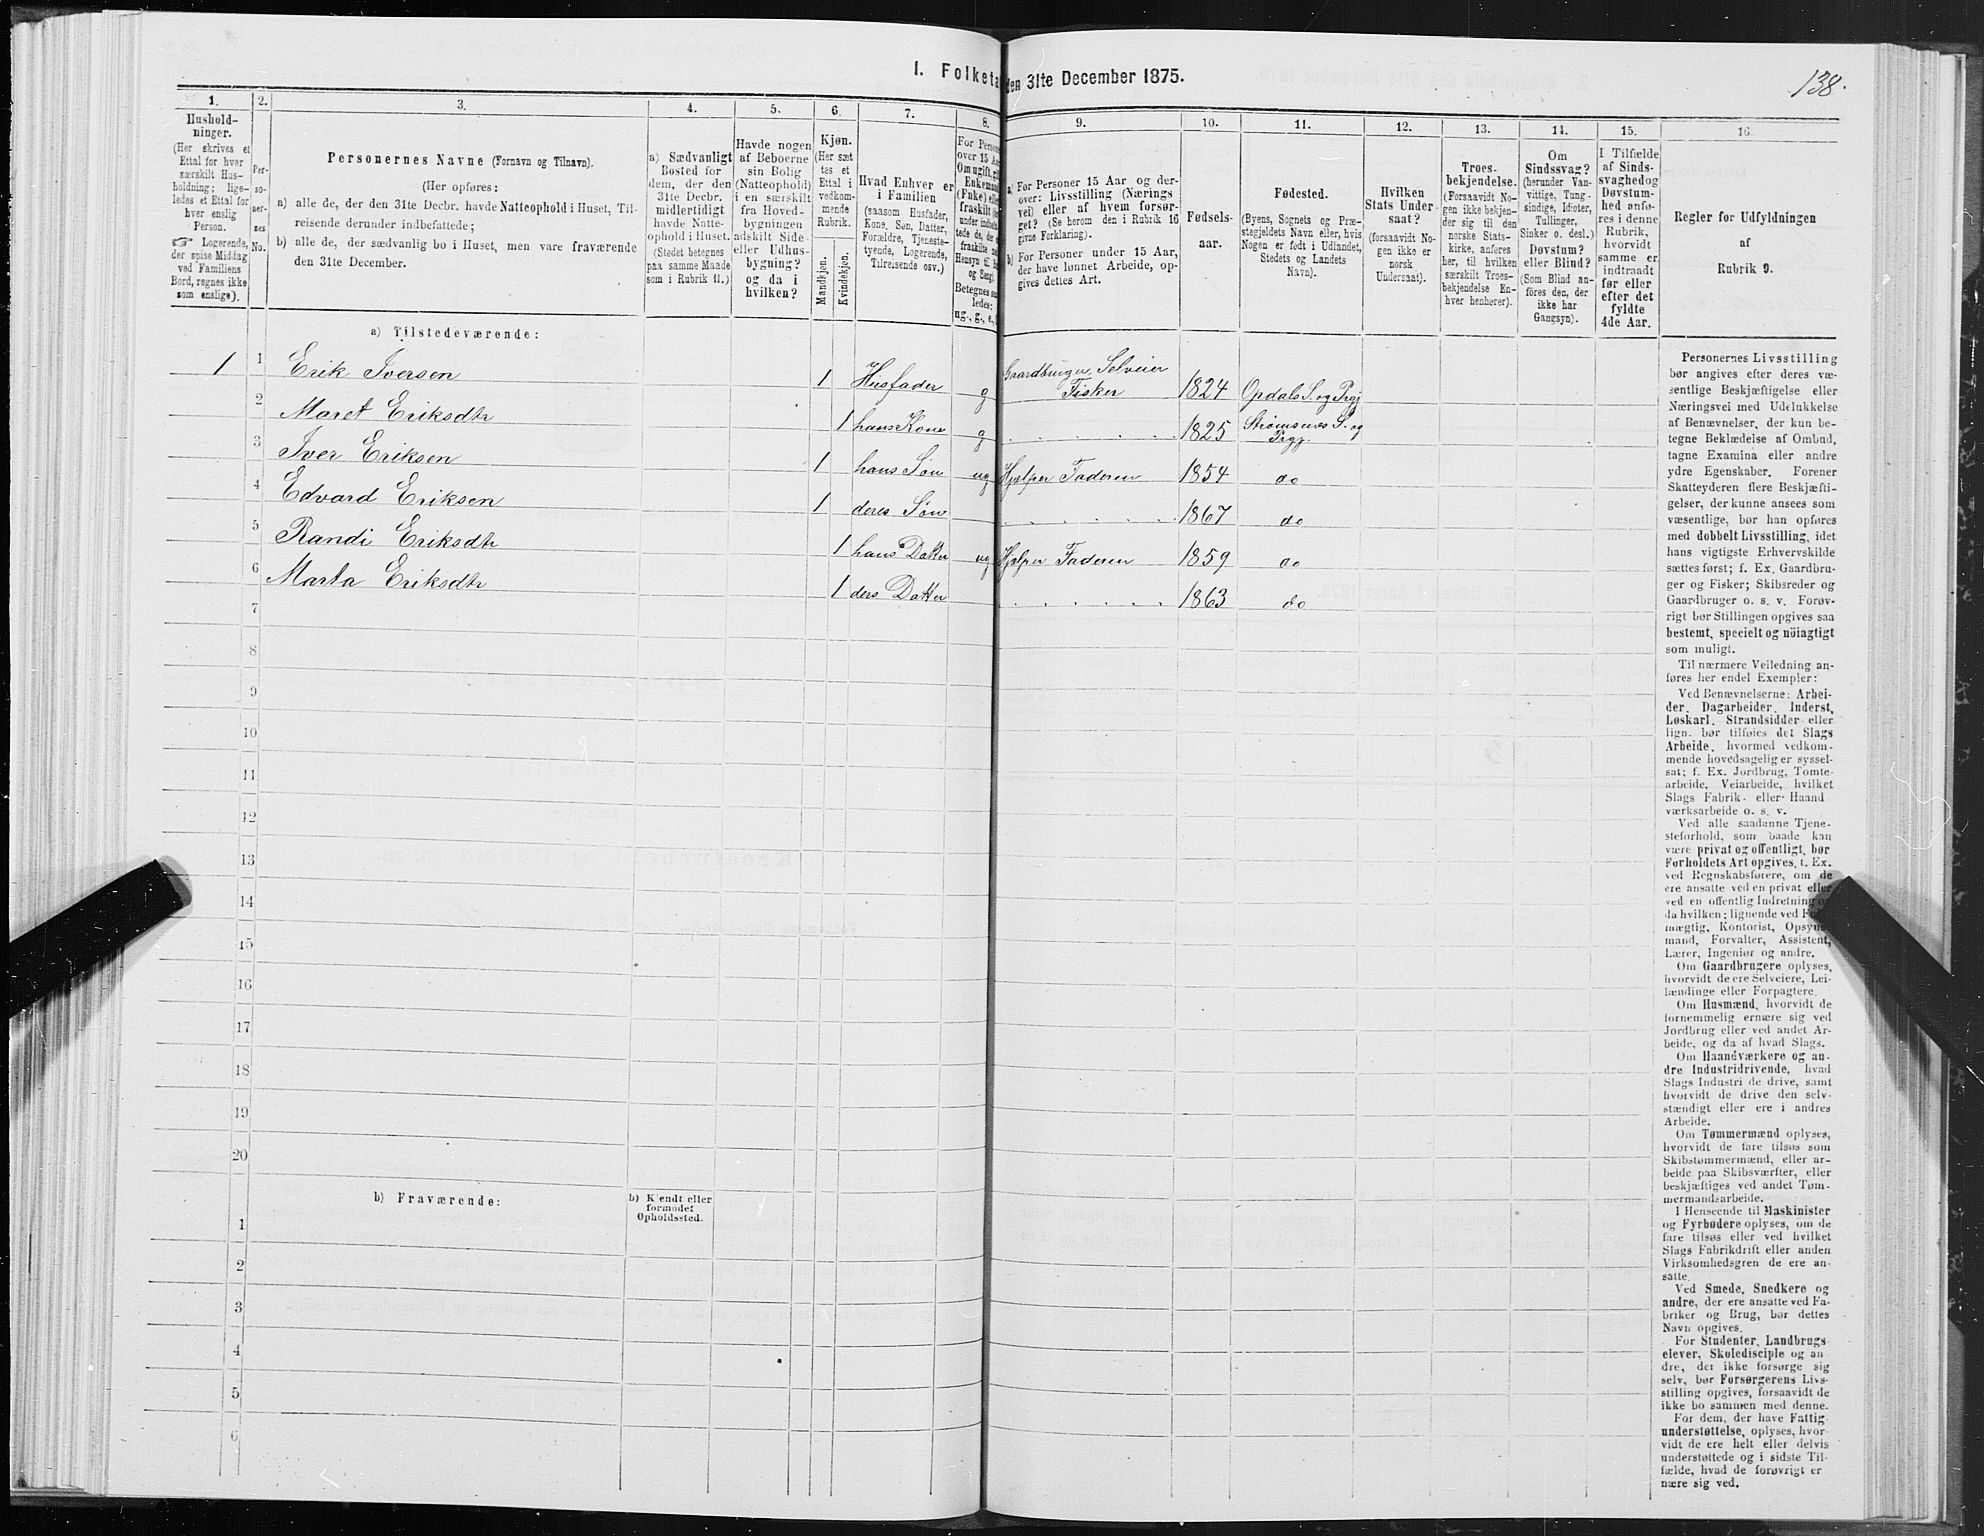 138.
I. Folketa den 31te December 1875.
1.
Hushold-
ninger.
(Her skrives et
Ettal for hver
særskilt Hus-
holdning; lige-
ledes et Ettal for
hver enslig
Person.
☞ Logerende,
der spise Middag
ved Familiens
Bord, regnes ikke
som enslige).
2.
Per-
so-
ner-
nes
No.
3.
Personernes Navne (Fornavn og Tilnavn).
(Her opføres:
a) alle de, der den 31te Decbr. havde Natteophold i Huset, Til-
reisende derunder indbefattede;
b) alle de, der sædvanlig bo i Huset, men vare fraværende
den 31te December.
4.
a) Sædvanligt
Bosted for
dem, der den
31te Decbr.
midlertidigt
havde Natte-
ophold i Huset.
(Stedet betegnes
paa samme Maade
som i Rubrik 11.)
5.
Havde nogen
af Beboerne
sin Bolig
(Natteophold)
i en særskilt
fra Hoved-
bygningen
adskilt Side-
eller Udhus-
bygning?
og da i
hvilken?
6.
Kjøn.
(Her sæt
tes et
Ettal i
vedkom-
mende
Rubrik.
Mandkjøn.
Kvindekjøn.
7.
Hvad Enhver er
i Familien
(saasom Husfader,
Kone, Søn, Datter,
Forældre, Tjeneste-
tyende, Logerende,
Tilreisende osv.)
8.
For Person
over 15 Aa
Om ugift, gi
Enkeman
(Enke) elle
fraskilt
Betegnes saa
ledes:
ug., g., e,
9.
a) For Personer 15 Aar og der-
over: Livsstilling (Nærings
vei) eller af hvem forsør-
get? (Se herom den i Rubrik 16
givne Forklaring).
b) For Personer under 15 Aar,
der have lønnet Arbeide, op-
gives dettes Art.
10.
Fødsels-
aar.
11.
Fødested.
(Byens, Sognets og Præ-
stegjeldets Navn eller, hvis
Nogen er født i Udlandet,
Stedets og Landets
Navn).
12.
Hvilken
Stats Under-
saat?
(forsaavidt No-
gen ikke er
norsk
Undersaat).
13.
Troes-
bekjendelse.
(Forsaavidt No-
gen ikke bekjen-
der sig til den
norske Stats-
kirke, anføres
her, til hvilken
særskilt Troes-
bekjendelse En-
hver henhører).
14.
Om
Sindssvag?
(herunder Van-
vittige, Tung-
sindige, Idioter,
Tullinger,
Sinker o. desl.)
Døvstum?
eller Blind?
(Som Blind an-
føres den, der
ikke har
Gangsyn).
15.
I Tilfælde
af Sinds-
svaghed og
Døvstum-
hed anfø-
res i denne
Rubrik,
hvorvidt
samme er
indtraadt
før eller
efter det
fyldte
4de Aar.
16.
Regler for Udfyldningen
af
Rubrik 9.
a) Tilstedeværende:
1 1 Erik Iversen 1 Husfader g Gaardbruger Selveier Fisker 1824 Opdals S. og Prgj
2 Maret Eriksdtr 1 hans Kone g 1825 Strømsnes S. og Prgj.
3 Iver Eriksen 1 hans Søn ug Hjelper Faderen 1854 do
4 Edvard Eriksen 1 deres Søn 1867 do
5 Randi Eriksdtr 1 hans Datter ug Hjelper Faderen 1859 do
6 Marta Eriksdtr 1 ders Datter 1863 do
7
8
9
10
11
12
13
14
15
16
17
18
19
20
b) Fraværende:
b) Kjendt eller
formodet
Opholdssted.
1
2
3
4
5
6
Personernes Livsstilling
bør angives efter deres væ-
sentlige Beskjæftigelse eller
Næringsvei med Udelukkelse
af Benævnelser, der kun be-
tegne Beklædelse af Ombud,
tagne Examina eller andre
ydre Egenskaber. Forener
Skatteyderen flere Beskjæfti-
gelser, der kunne ansees som
væsentlige, bør han opføres
med dobbelt Livsstilling, idet
hans vigtigste Erhvervskilde
sættes først; f. Ex. Gaardbru-
ger og Fisker; Skibsreder og
Gaardbruger o. s. v. Forøv-
rigt bør Stillingen opgives saa
bestemt, specielt og nöiagtigt
som muligt.
Til nærmere Veiledning an-
føres her endel Exempler:
Ved Benævnelserne: Arbei-
der, Dagarbeider, Inderst,
Løskarl, Strandsidder eller
lign. bør tilføies det Slags
Arbeide, hvormed vedkom-
mende hovedsagelig er syssel-
sat; f. Ex. Jordbrug, Tomte-
arbeide, Veiarbeide, hvilket
Slags Fabrik- eller Haand
værksarbeide o. s. v.
Ved alle saadanne Tjene-
steforhold, som baade kan
være privat og offentligt, bør
Forholdets Art opgives, t. Ex.
ved Regnskabsførere, om de
ere ansatte ved en privat eller
ved en offentlig Indretning
da hvilken; lignende ved
mægtig, Kontorist, Opsyns
mand, Forvalter, Assistent,
Lærer, Ingeniør og andre.
Om Gaardbrugere oplyses,
hvorvidt de ere Selveiere, Lei-
lændinge eller Forpagtere.
Om Husmænd, hvorvidt de
fornemmelig ernære sig ved
Jordbrug eller ved andet Ar-
beide, og da af hvad Slags.
Om Haandværkere og an-
dre Industridrivende, hvad
Slags Industri de drive, samt
hvorvidt de drive den selv-
stændigt eller ere i andres
Arbeide.
Om Tømmermænd oplyses,
hvorvidt de fare tilsøs som
Skibstømmermænd, eller ar-
beide paa Skibsværfter, eller
beskjæftiges ved andet Tøm-
mermandsarbeide.
I Henseende til Maskinister
og Fyrbødere oplyses, om de
fare tilsøs eller ved hvilket
Slags Fabrikdrift eller anden
Virksomhedsgren de ere an-
satte.
Ved Smede, Snedkere og
andre, der ere ansatte ved Fa-
briker og Brug, bør dettes
Navn opgives.
For Studenter, Landbrugs
elever, Skoledisciple og an
dre, der ikke forsørge sig
selv, bør Forsørgerens Livs-
stilling opgives, forsaavidt de
ikke bo sammen med denne.
For dem, der have Fattig
understøttelse, oplyses, hvor-
vidt de ere helt eller delvis
understøttede og i sidste Til-
fælde, hvad de forøvrigt er
nære sig ved.